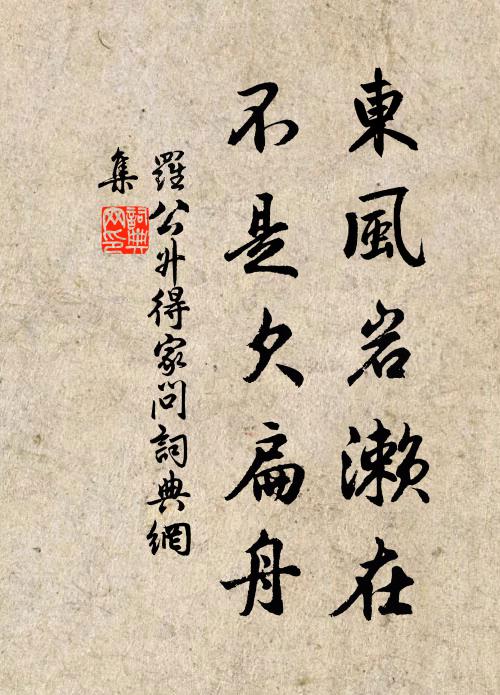 東風岩瀨在
不是欠扁舟
羅公升得家問詞典網
集
詞典
网印